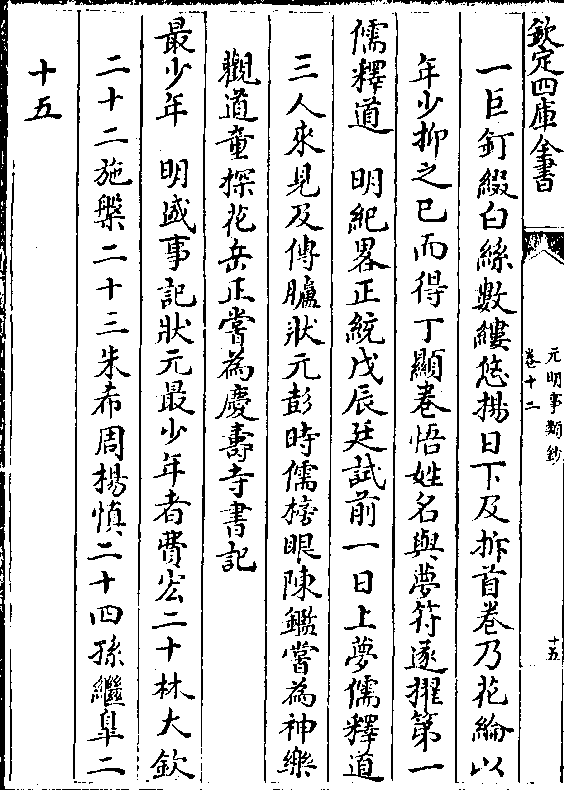 欽定四庫全書
元明事類鈔
卷十二
十五
一巨釘綴白絲數縷悠揚日下及拆首卷乃花綸以
年少抑之已而得丁顯卷悟姓名與夢符遂擢第一
儒釋道　明紀畧正統戊辰廷試前一日上夢儒釋道
三人來見及傳臚狀元彭時儒榜眼陳鑑嘗為神樂
觀道童探花岳正嘗為慶壽寺書記
最少年　明盛事記狀元最少年者費宏二十林大欽
二十二施槃二十三朱希周楊慎二十四孫繼臯二
十五